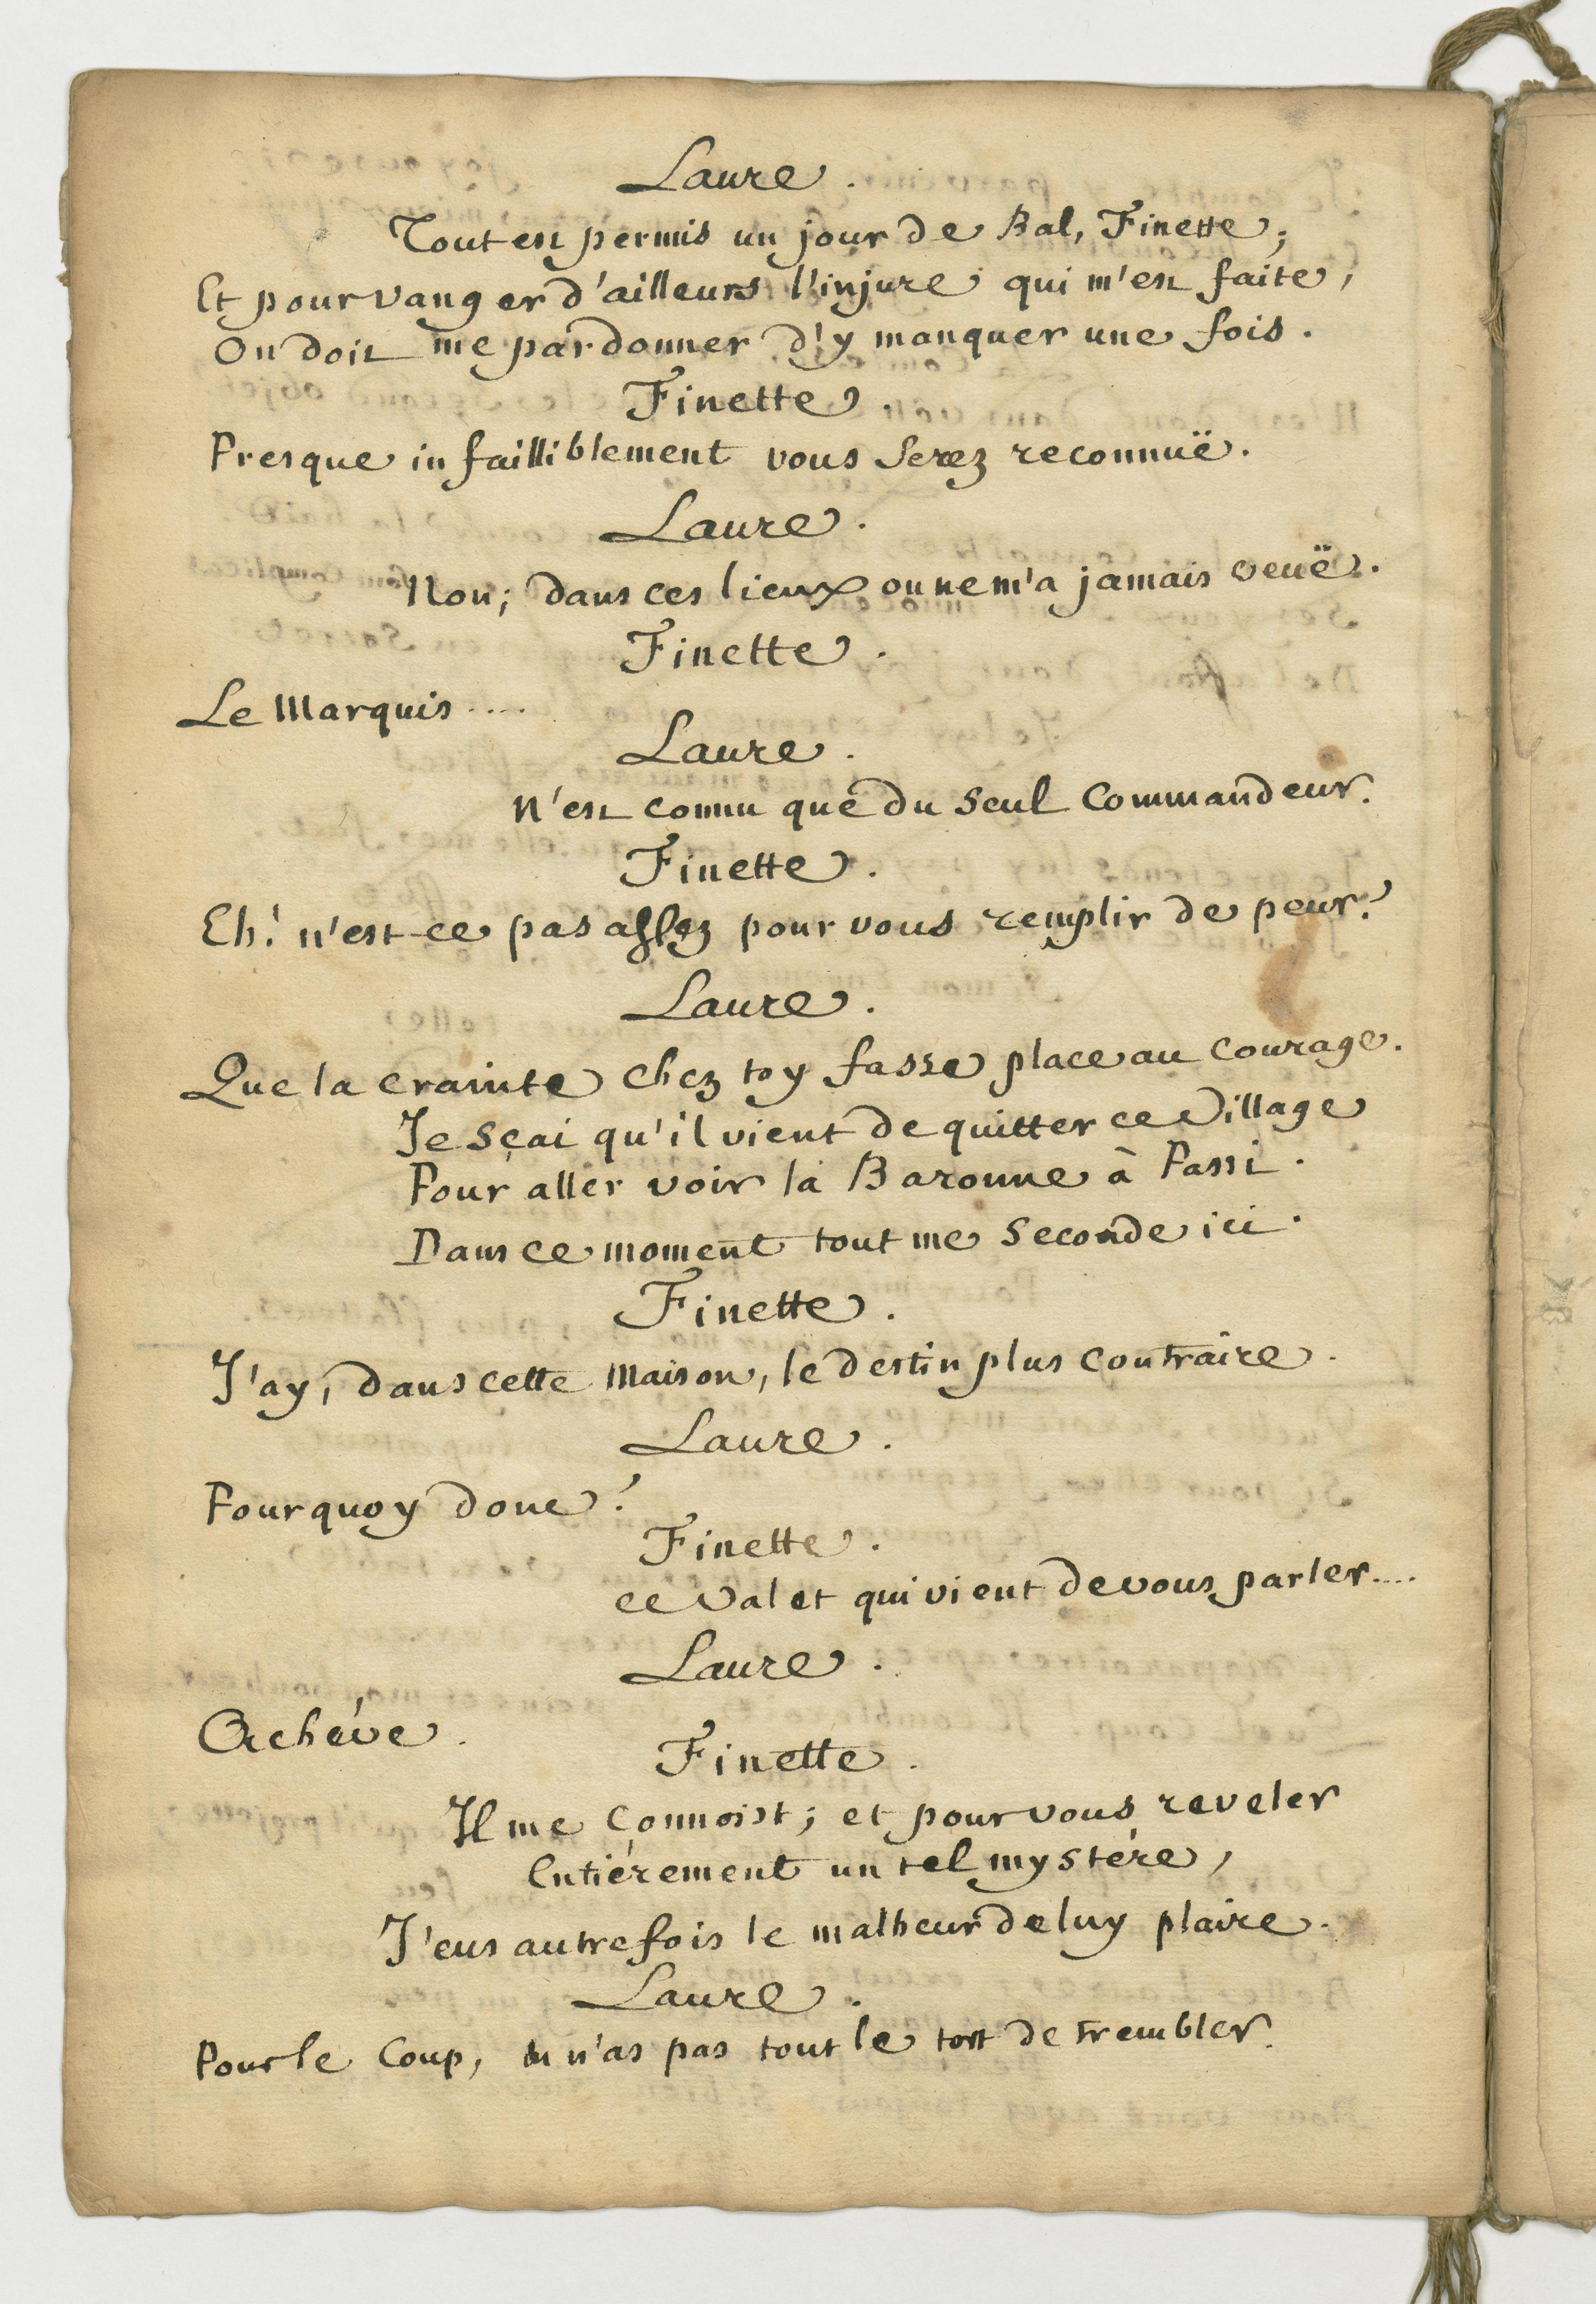 Laure.
Tout est permis un jour de Bal, Finette;
Et pour vanger d'ailleurs l'injure qui m'est faite,
On doit me pardonner d'y manquer une fois.
Finette.
Presque infailliblement vous serez reconnuë.
Laure.
Non; dans ces lieux on ne m'a jamais veuë.
Finette.
Le Marquis....
Laure.
N'est connu que du seul Commandeur.
Finette.
Eh! n'est-ce pas assez pour vous remplir de peur?
Laure.
Que la crainte chez toy fasse place au courage.
Je sçai qu'il vient de quitter ce Village
Pour aller voir la Baronne à Passi.
Dans ce moment tout me seconde ici.
Finette.
J'ay, dans cette Maison, le destin plus contraire.
Laure.
Pourquoy donc?
Finette.
ce Valet qui vient de vous parler....
Laure.
Achéve.
Finette.
Il me connoist; et pour vous reveler
Entiérement un tel mystére,
J'eus autrefois le malheur de luy plaire.
Laure.
Pour le coup, tu n'as pas tout le tort de trembler.